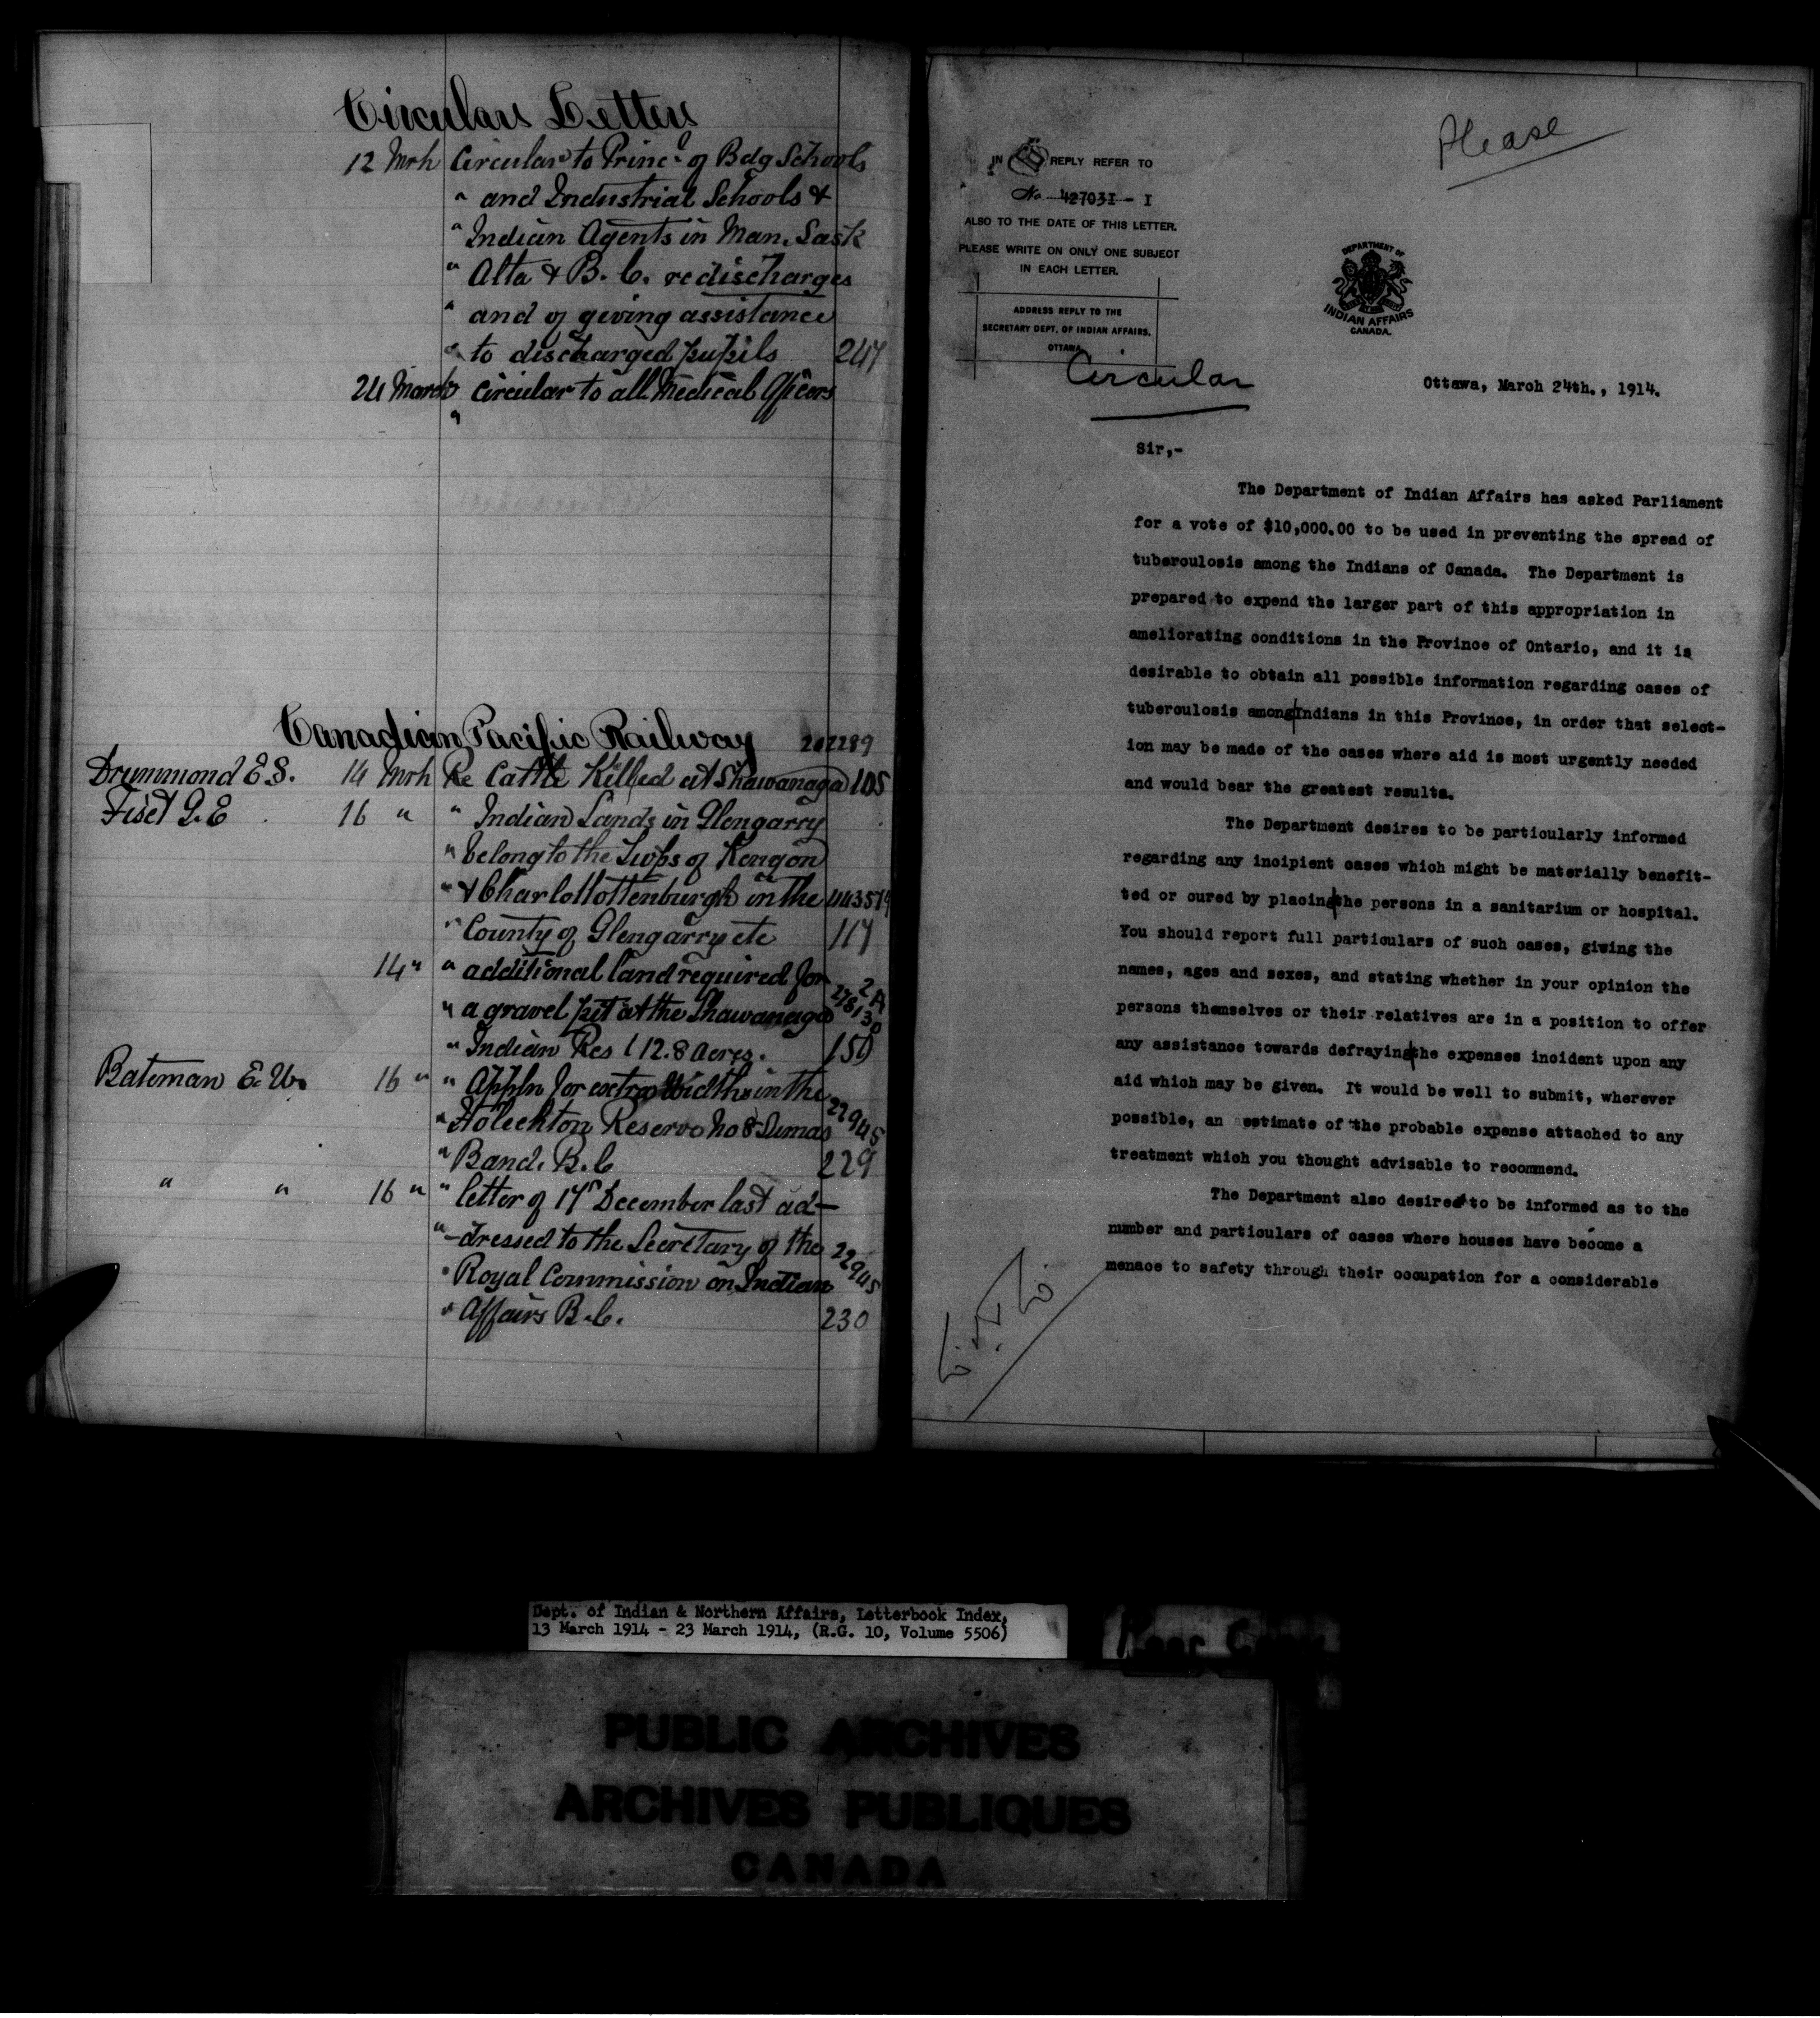 Circulars Letters
12 Mrh Circular to Princ. of Bdg Schools
" and Industrial Schools &
" Indian Agents in Man. Sask
" Alta & B. C. re discharges
" and of giving assistance
" to discharged pupils 247
24 March Circular to all Medical Officers
"
Canadian Pacific Railway 202289
Drummond E.S. 14 Mrh Re Cattle Killed at Shawanaga 105
Fiset G.E 16 " " Indian Lands in Glengarry
" belong to the Twps of Kenyon
" & Charlottottenburgh in the 443579
" County of Glengarry etc 117
14 " " additional land required for
" a gravel pit at the Shawanaga
" Indian Res (12.8 acres. 150
Bateman E. W. 16 " " Appln for extra Width in the
" Reserve No 8 Sumas 22945
" Band. B.C 229
" " 16 " " letter of 17th December last ad-
" -dressed to the Secretary of the
" Royal Commission on Indian 22945
" Affairs B.C. 230
Please
IN REPLY REFER TO
No 427031 - I
ALSO TO THE DATE OF THIS LETTER.
PLEASE WRITE ON ONLY ONE SUBJECT
IN EACH LETTER.
ADDRESS REPLY TO THE
SECRETARY DEPT. OF INDIAN AFFAIRS,
OTTAWA.
DEPARTMENT OF
INDIAN AFFAIRS
CANADA.
Circular
Ottawa, March 24th., 1914.
Sir,-
The Department of Indian Affairs has asked Parliament
for a vote of $10,000.00 to be used in preventing the spread of
tuberculosis among the Indians of Canada. The Department is
prepared to expend the larger part of this appropriation in
ameliorating conditions in the Province of Ontario, and it is
desirable to obtain all possible information regarding cases of
tuberculosis among|Indians in this Province, in order that select-
ion may be made of the cases where aid is most urgently needed
and would bear the greatest results.
The Department desires to be particularly informed
regarding any incipient cases which might be materially benefit-
ted or cured by placing|the persons in a sanitarium or hospital.
You should report full particulars of such cases, giving the
names, ages and sexes, and stating whether in your opinion the
persons themselves or their relatives are in a position to offer
any assistance towards defraying|the expenses incident upon any
aid which may be given. It would be well to submit, wherever
possible, an estimate of the probable expense attached to any
treatment which you thought advisable to recommend.
The Department also desires to be informed as to the
number and particulars of cases where houses have become a
menace to safety through their occupation for a considerable
Dept. of Indian & Northern Affairs, Letterbook Index,
13 March 1914 - 23 March 1914, (R.G. 10, Volume 5506)
PUBLIC ARCHIVES
ARCHIVES PUBLIQUES
CANADA